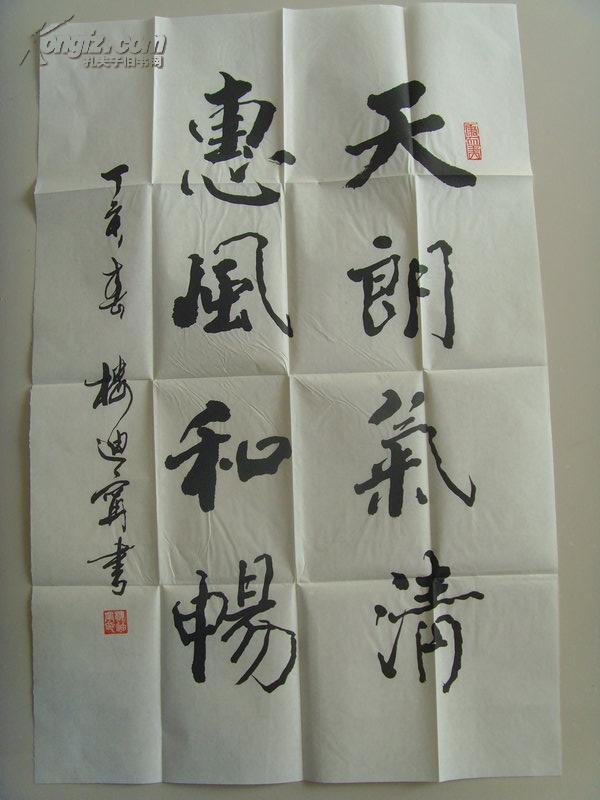 天朗氣清
惠風和暢
丁亥春 樓迪寗書
Kongfz.com
孔夫子旧书网